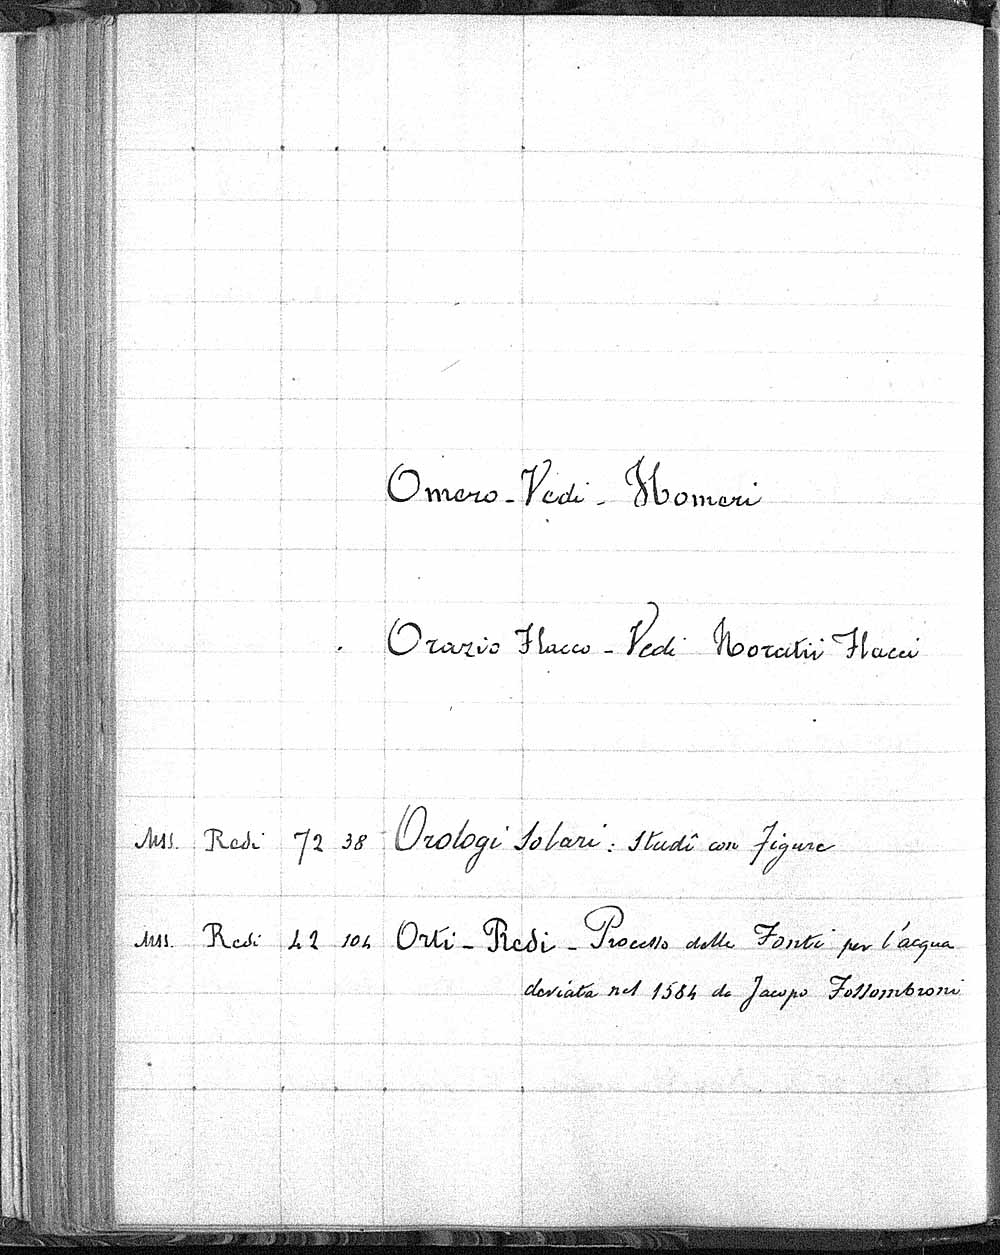 Omero - Vedi - Homeri
Orazio Flacco - Vedi Horatii Flacci
Mss. Redi 72 38 Orologi Solari: Studî con figure
Mss. Redi 42 104 Orti - Redi - Processo delle Fonti per l'acqua
deviata nel 1584 da Jacopo Fossombroni